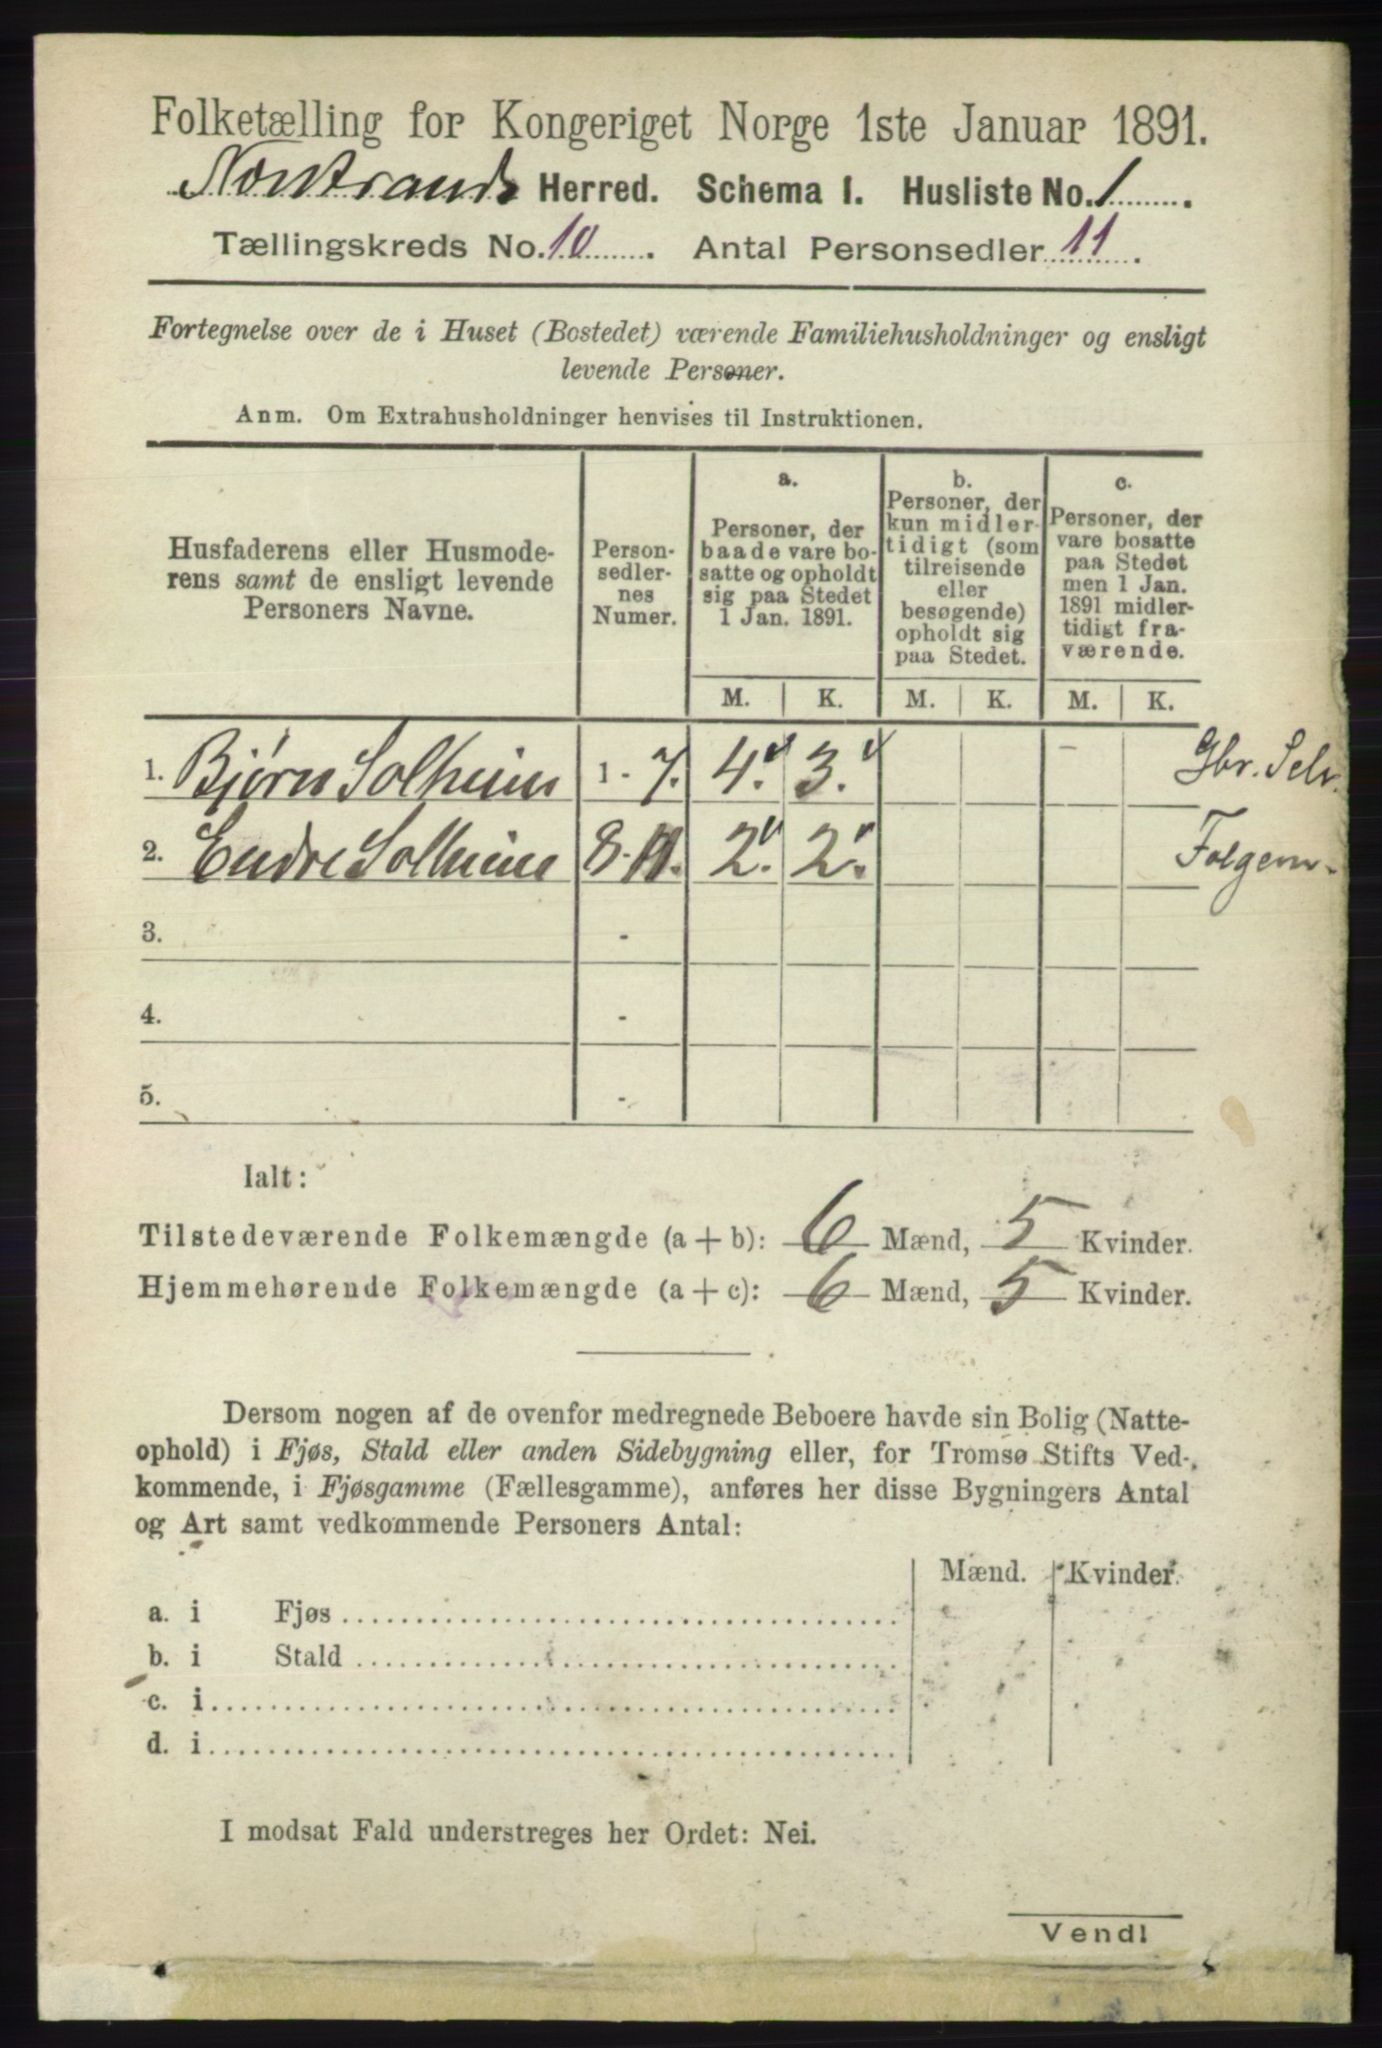 Folketælling for Kongeriget Norge 1ste Januar 1891.
Nærstrands Herred. Schema 1. Husliste No. 1
Tællingskreds No. 10. Antal Personsedler 11.
Fortegnelse over de i Huset (Bostedet) værende Familiehusholdninger og ensligt
levende Personer.
Anm. Om Extrahusholdninger henvises til Instruktionen.
Husfaderens eller Husmode-
rens samt de ensligt levende
Personers Navne.
Person-
sedler-
nes
Numer.
a.
Personer, der
baade vare bo-
satte og opholdt
sig paa Stedet
1 Jan. 1891.
b.
Personer, der
kun midler-
tidigt (som
tilreisende
eller
besøgende)
opholdt sig
paa Stedet.
c.
Personer, der
vare bosatte
paa Stedet
men 1 Jan.
1891 midler-
tidigt fra-
værende.
M. K. M. K. M. K.
1. Bjørn Solheim 1 - 7. 4. 3. Gbr. Selv.
2. Endre Solheim 8 - 11. 2. 2. Folgem.
3. -
4. -
5. -
Ialt:
Tilstedeværende Folkemængde (a + b): 6 Mænd, 5 Kvinder.
Hjemmehørende Folkemængde (a + c): 6 Mænd, 5 Kvinder.
Dersom nogen af de ovenfor medregnede Beboere havde sin Bolig (Natte-
ophold) i Fjøs, Stald eller anden Sidebygning eller, for Tromsø Stifts Ved-
kommende, i Fjøsgamme (Fællesgamme), anføres her disse Bygningers Antal
og Art samt vedkommende Personers Antal:
Mænd. Kvinder.
a. i Fjøs
b. i Stald
c. i
d. i
I modsat Fald understreges her Ordet: Nei.
Vendl